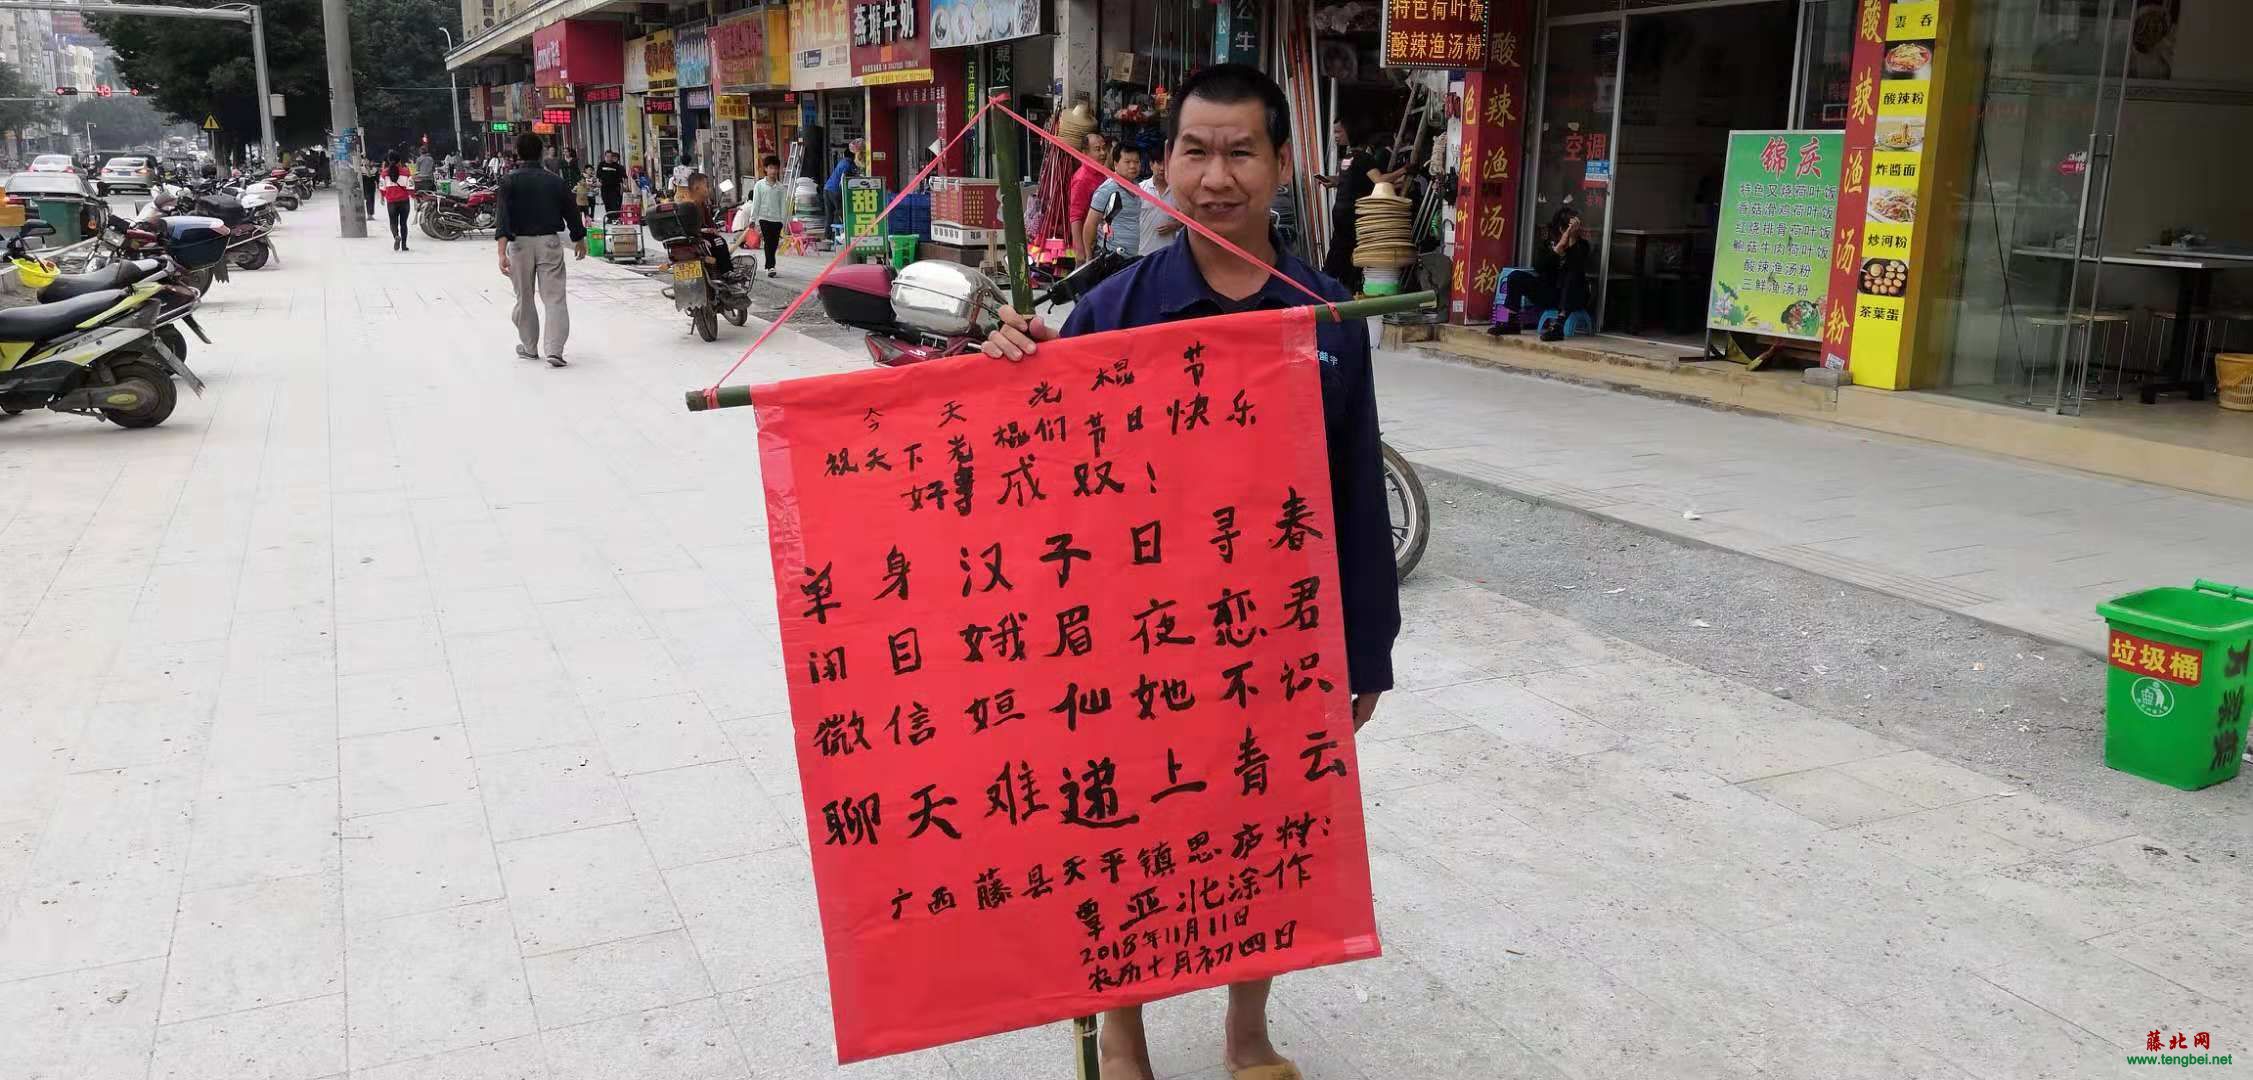 今天光棍节
祝天下光棍们节日快乐
好事成双！
单身汉子日寻春
闭目娥眉夜恋君
微信姮仙她不识
聊天难递上青云
广西藤县天平镇思庐村：
覃亚北涂作
2018年11月11日
农历十月初四日
燕塘牛奶
豆腐花
糖水
公牛
甜品
特色荷叶饭
酸辣渔汤粉
酸辣渔汤粉
色荷叶饭
空调
锦庆
特色叉烧荷叶饭
香菇滑鸡荷叶饭
红烧排骨荷叶饭
酸辣渔汤粉
三鲜渔汤粉
酸辣渔汤粉
雲吞
酸辣粉
炸醬面
炒河粉
茶葉蛋
垃圾桶
藤北网
www.tengbei.net